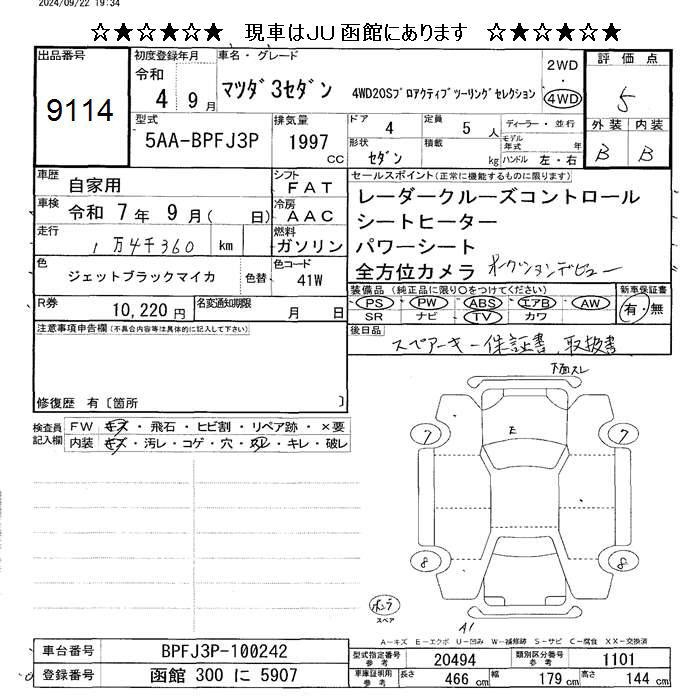 2024/09/22 19:34
☆★☆★☆★ 現車はJU函館にあります ☆★☆★☆★
出品番号
9114
初度登録年月
令和
4 9月
車名・グレード
マツダ3セダン 4WD20Sプロアクティブツーリングセレクション
2WD
・
4WD
評価点
5
外装 内装
B B
型式
5AA-BPFJ3P
排気量
1997
CC
ドア
4
定員
5 人
ディーラー・並行
モデル年式 年
形状
セダン
積載
kg
ハンドル 左・右
車歴
自家用
シフト
FAT
車検
令和 7年 9月( 日)
冷房
AAC
走行
1万4千360 km
燃料
ガソリン
色
ジェットブラックマイカ
色替
色コード
41W
R券
10,220円
名変通知期限
月 日
セールスポイント(正常に機能するものに限ります)
レーダークルーズコントロール
シートヒーター
パワーシート
全方位カメラ オークションデビュー
装備品 (純正品に限り○をつけてください)
PS・PW・ABS・エアB・AW
SR ナビ TV カワ
新車保証書
有・無
後日品
スペアーキー 保証書 取扱書
注意事項申告欄(不具合内容等は具体的に記入して下さい)
修復歴 有〔箇所 〕
検査員記入欄
FW キズ・飛石・ヒビ割・リペア跡・×要
内装 キズ・汚レ・コゲ・穴・スレ・キレ・破レ
下面スレ
E
7 7
8 8
スペア
A1
A-キズ E-エクボ U-凹み W-補修跡 S-サビ C-腐食 XX-交換済
車台番号 BPFJ3P-100242
登録番号 函館 300 に 5907
型式指定番号 参考 20494
類別区分番号 参考 1101
車庫証明用 参考 長さ 466 cm 幅 179 cm 高さ 144 cm